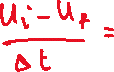 u_i - u_f
Δt =